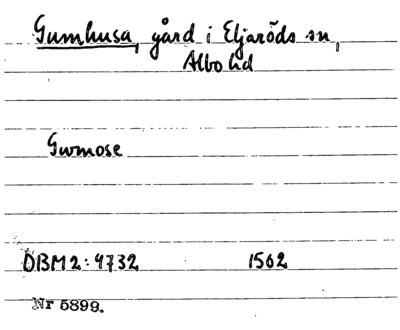 Gumhusa, gård i Eljaröds sn,
Albo hd
Gwmose
DBM2:9732 1562
Nr 5899.